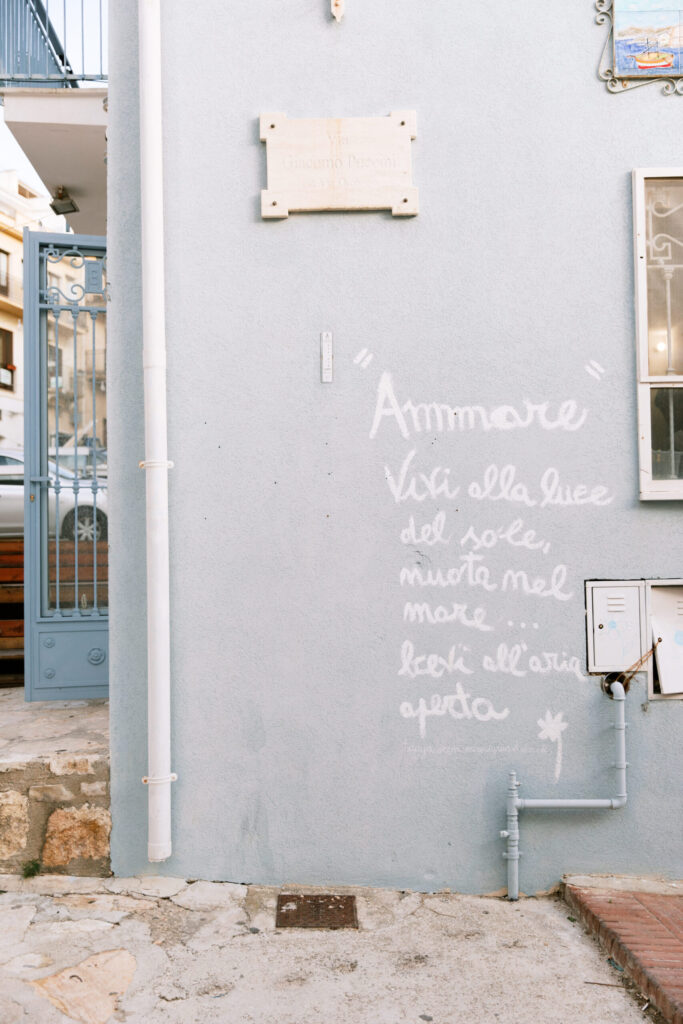 Via
Giacomo Puccini
"Ammare"
Vivi alla luce
del sole,
nuota nel
mare ...
bevi all'aria
aperta